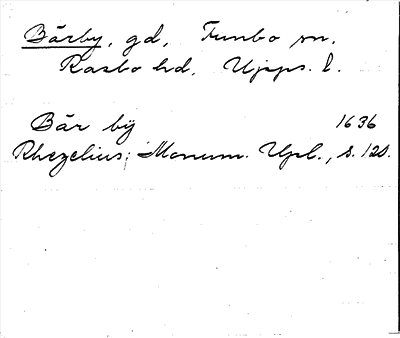 Bärby, gd, Funbo sn.
Rasbo hd. Upps. l.
Bär bÿ 1636
Rhezelius; Monum. Upl., s. 120.